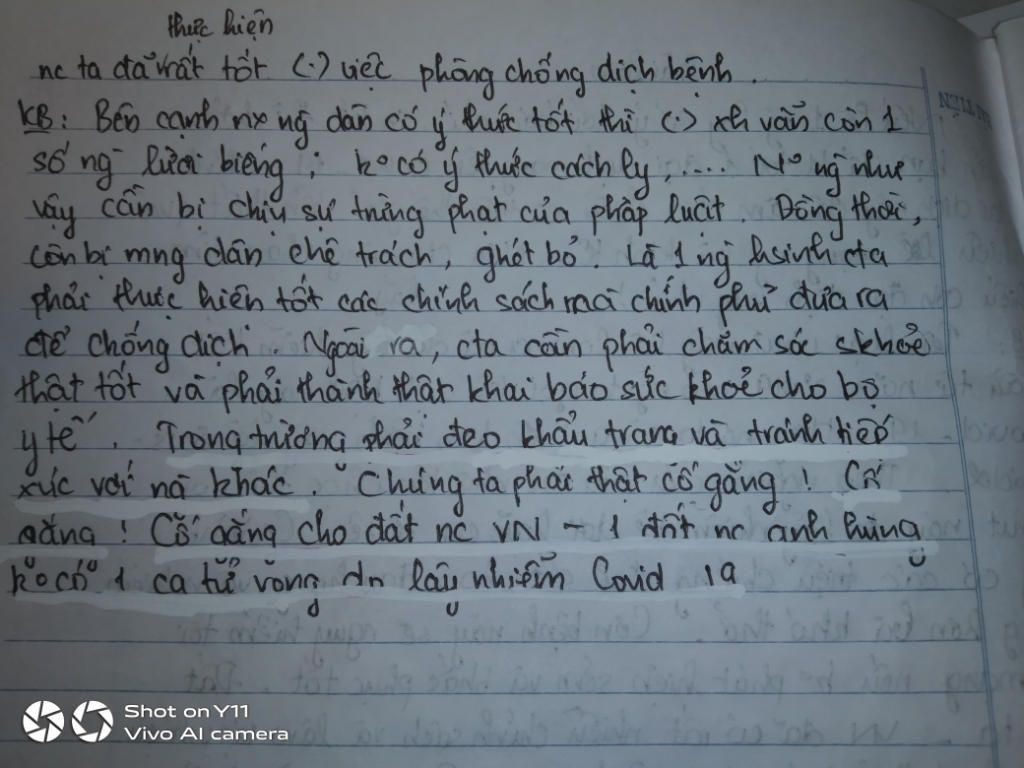 thực hiện
nc ta đã rất tốt (.) việc phòng chống dịch bệnh.
KB: Bên cạnh nx ng dân có ý thức tốt thì (.) xh vẫn còn 1
số ng lười biếng; ko có ý thức cách ly,.... No ng như
vậy cần bị chịu sự trừng phạt của pháp luật. Đồng thời,
còn bị mng dân chê trách, ghét bỏ. Là 1 ng hsinh cta
phải thực hiện tốt các chính sách mà chính phủ đưa ra
để chống dịch. Ngoài ra, cta cần phải chăm sóc skhoẻ
thật tốt và phải thành thật khai báo sức khoẻ cho bộ
y tế. Trong trường phải đeo khẩu trang và tránh tiếp
xúc với ng khác. Chúng ta phải thật cố gắng! Cố
gắng! Cố gắng cho đất nc VN - 1 đất nc anh hùng
ko có 1 ca tử vong do lây nhiễm Covid 19
Shot on Y11
Vivo AI camera